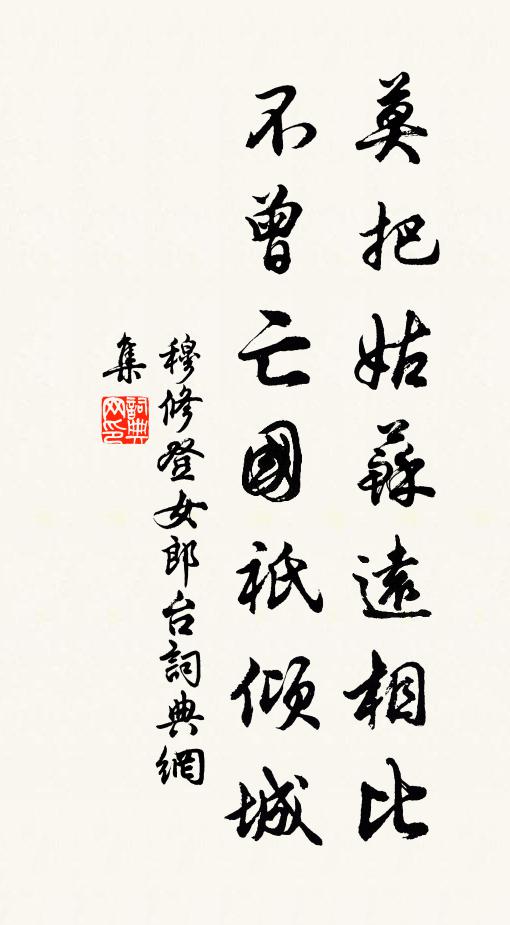 莫把姑蘇遠相比
不曾亡國祇傾城
穆修登女郎台詞典網
集
詞典網印